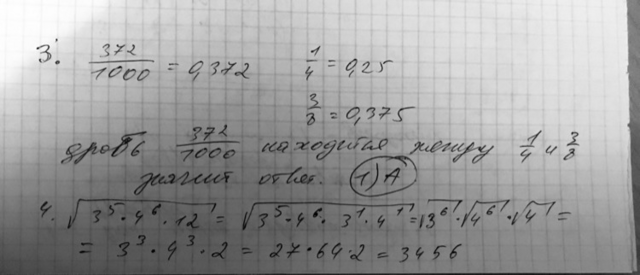 3. 372/1000 = 0,372 1/4 = 0,25
3/8 = 0,375
дробь 372/1000 находится между 1/4 и 3/8
значит ответ. 1) А
4. √(3⁵·4⁶·12¹) = √(3⁵·4⁶·3¹·4¹) = √3⁶·√4⁶·√4¹ =
= 3³·4³·2 = 27·64·2 = 3456